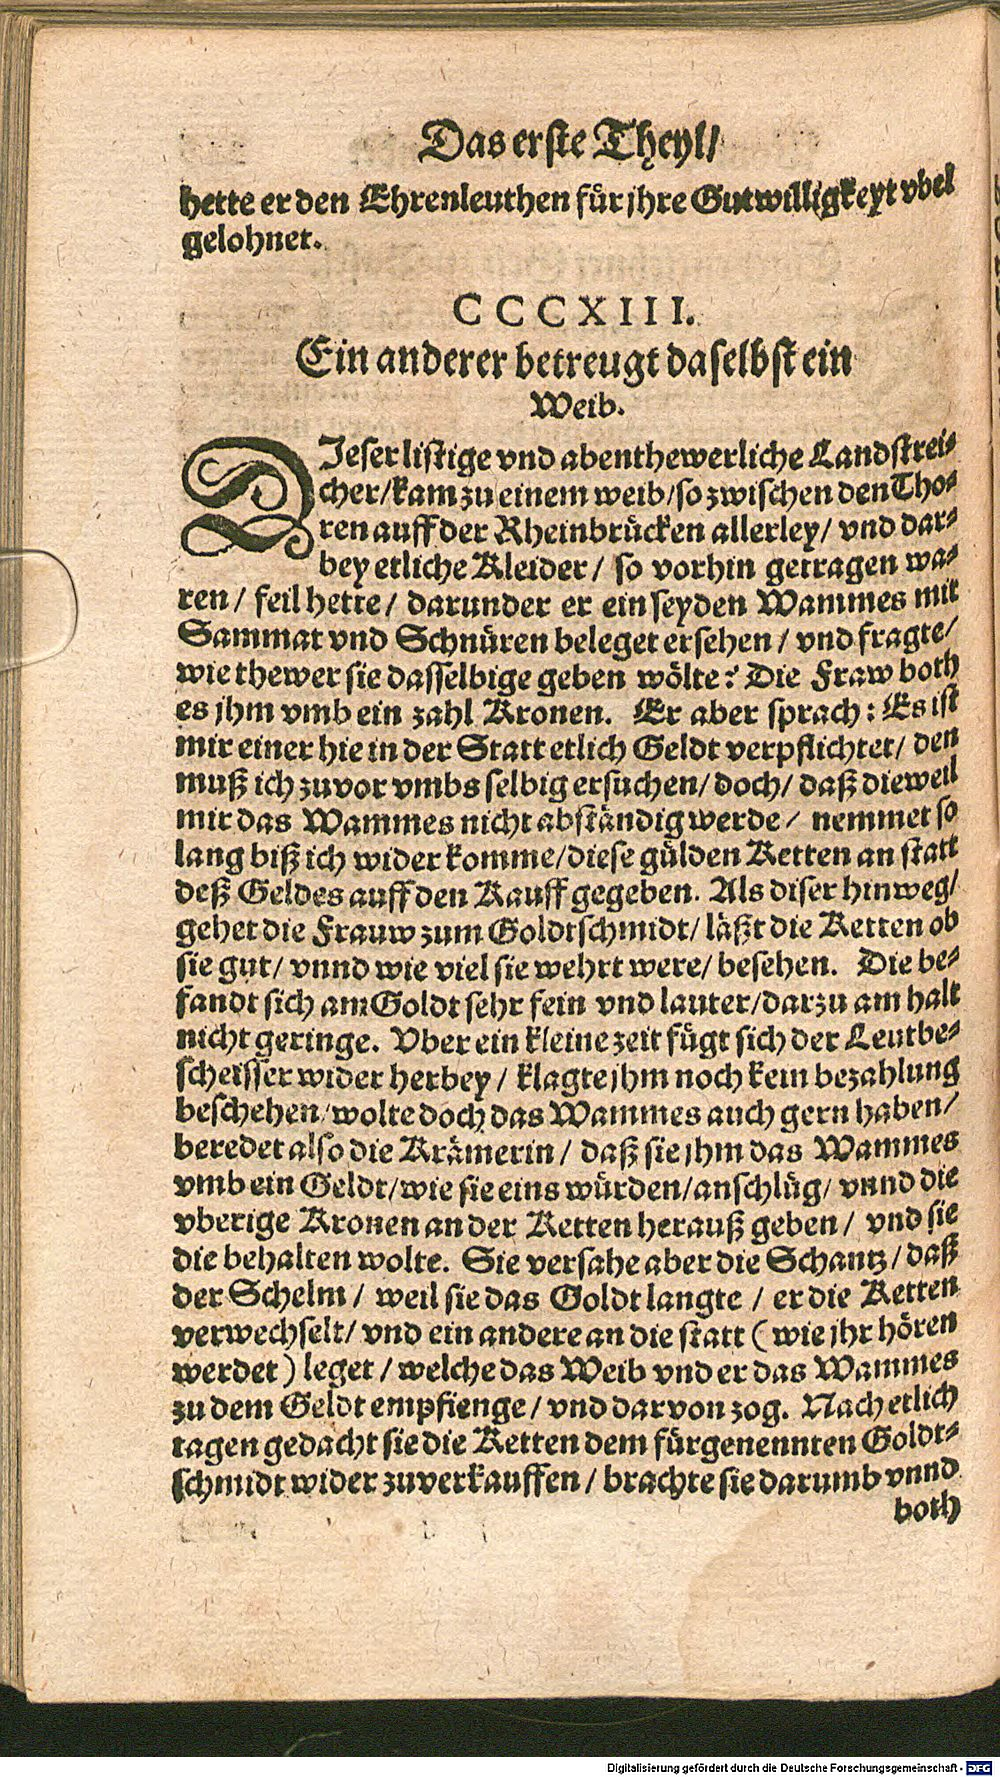 Das erste Theyl/
hette er den Ehrenleuthen für jhre Gutwilligkeyt vbel
gelohnet.
CCCXIII.
Ein anderer betreugt daselbst ein
Weib.
DJeser listige vnd abenthewerliche Landstrei-
cher/kam zu einem weib/so zwischen den Tho-
ren auff der Rheinbrücken allerley/ vnd dar-
bey etliche Kleider/ so vorhin getragen wa-
ren/ feil hette/ darunder er ein seyden Wammes mit
Sammat vnd Schnüren beleget ersehen/ vnd fragte/
wie thewer sie dasselbige geben wölte? Die Fraw both
es jhm vmb ein zahl Kronen. Er aber sprach: Es ist
mir einer hie in der Statt etlich Geldt verpflichtet/ den
muß ich zuvor vmbs selbig ersuchen/ doch/ daß dieweil
mir das Wammes nicht abständig werde/ nemmet so
lang biß ich wider komme/diese gülden Ketten an statt
deß Geldes auff den Kauff gegeben. Als diser hinweg/
gehet die Frauw zum Goldtschmidt/ läßt die Ketten ob
sie gut/ vnnd wie viel sie wehrt were/ besehen. Die be-
fandt sich am Goldt sehr fein vnd lauter/darzu am halt
nicht geringe. Vber ein kleine zeit fügt sich der Leutbe-
scheisser wider herbey/ klagte jhm noch kein bezahlung
beschehen/wolte doch das Wammes auch gern haben/
beredet also die Krämerin/ daß sie jhm das Wammes
vmb ein Geldt/wie sie eins würden/anschlüg/ vnnd die
vberige Kronen an der Ketten herauß geben/ vnd sie
die behalten wolte. Sie versahe aber die Schantz/ daß
der Schelm/ weil sie das Goldt langte/ er die Ketten
verwechselt/ vnd ein andere an die statt (wie jhr hören
werdet) leget/ welche das Weib vnd er das Wammes
zu dem Geldt empfienge/ vnd darvon zog. Nach etlich
tagen gedacht sie die Ketten dem fürgenennten Goldt-
schmidt wider zuverkauffen/ brachte sie darumb vnnd
both
Digitalisierung gefördert durch die Deutsche Forschungsgemeinschaft - DFG